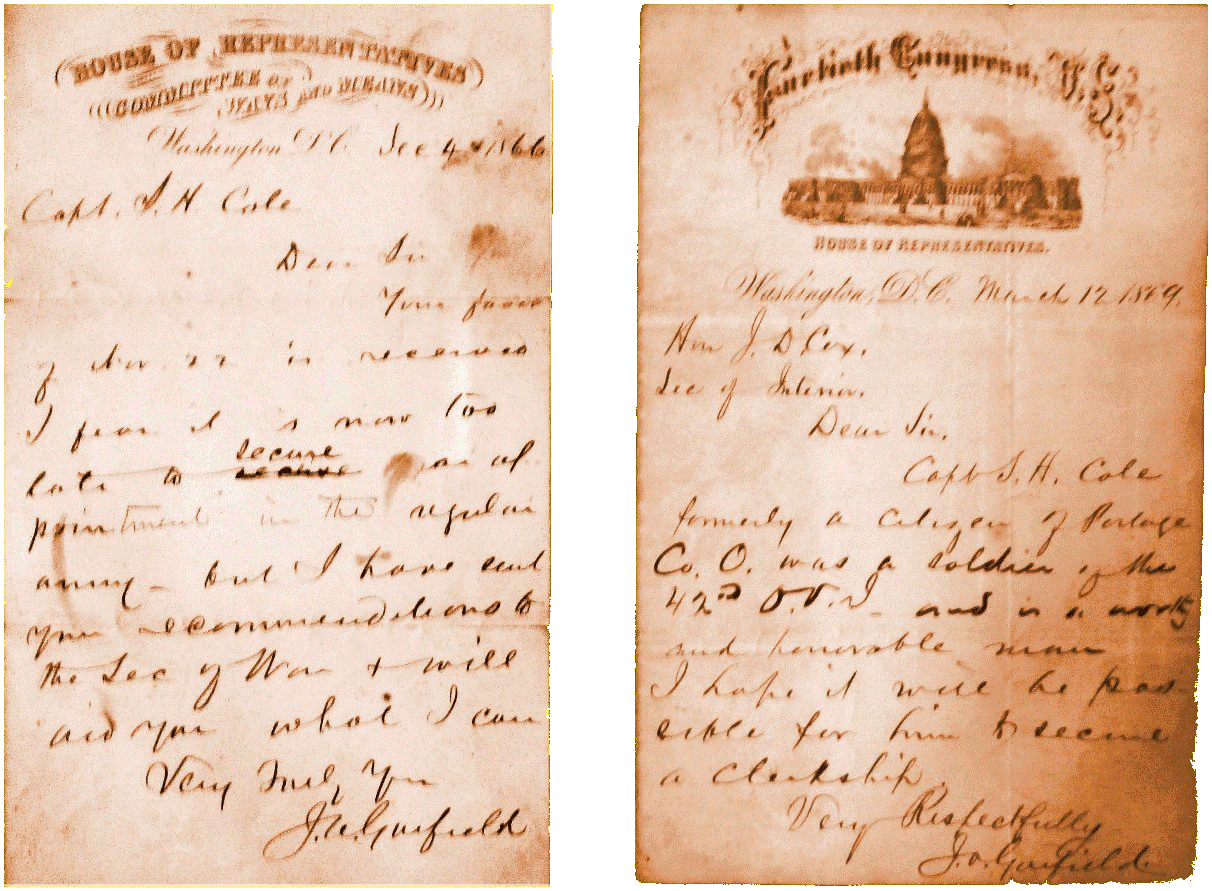 HOUSE OF REPRESENTATIVES
COMMITTEE OF
WAYS AND MEANS
Washington D.C. Dec 4 1866
Capt. S. H. Cole
Dear Sir
Your favor
of Nov. 22 is received
I fear it is now too
late to secure an ap
pointment in the regular
army - but I have sent
your recommendations to
the Sec of War & will
aid you what I can
Very Truly Yours
J. A. Garfield
Fortieth Congress, U.S.
HOUSE OF REPRESENTATIVES.
Washington, D.C. March 12 1869.
Hon J. D Cox.
Sec of Interior.
Dear Sir,
Capt S. H. Cole
formerly a citizen of Portage
Co. O. was a soldier of the
42nd O.V.I. and is a worthy
and honorable man
I hope it will be pos-
sible for him to secure
a clerkship.
Very Respectfully
J. A. Garfield